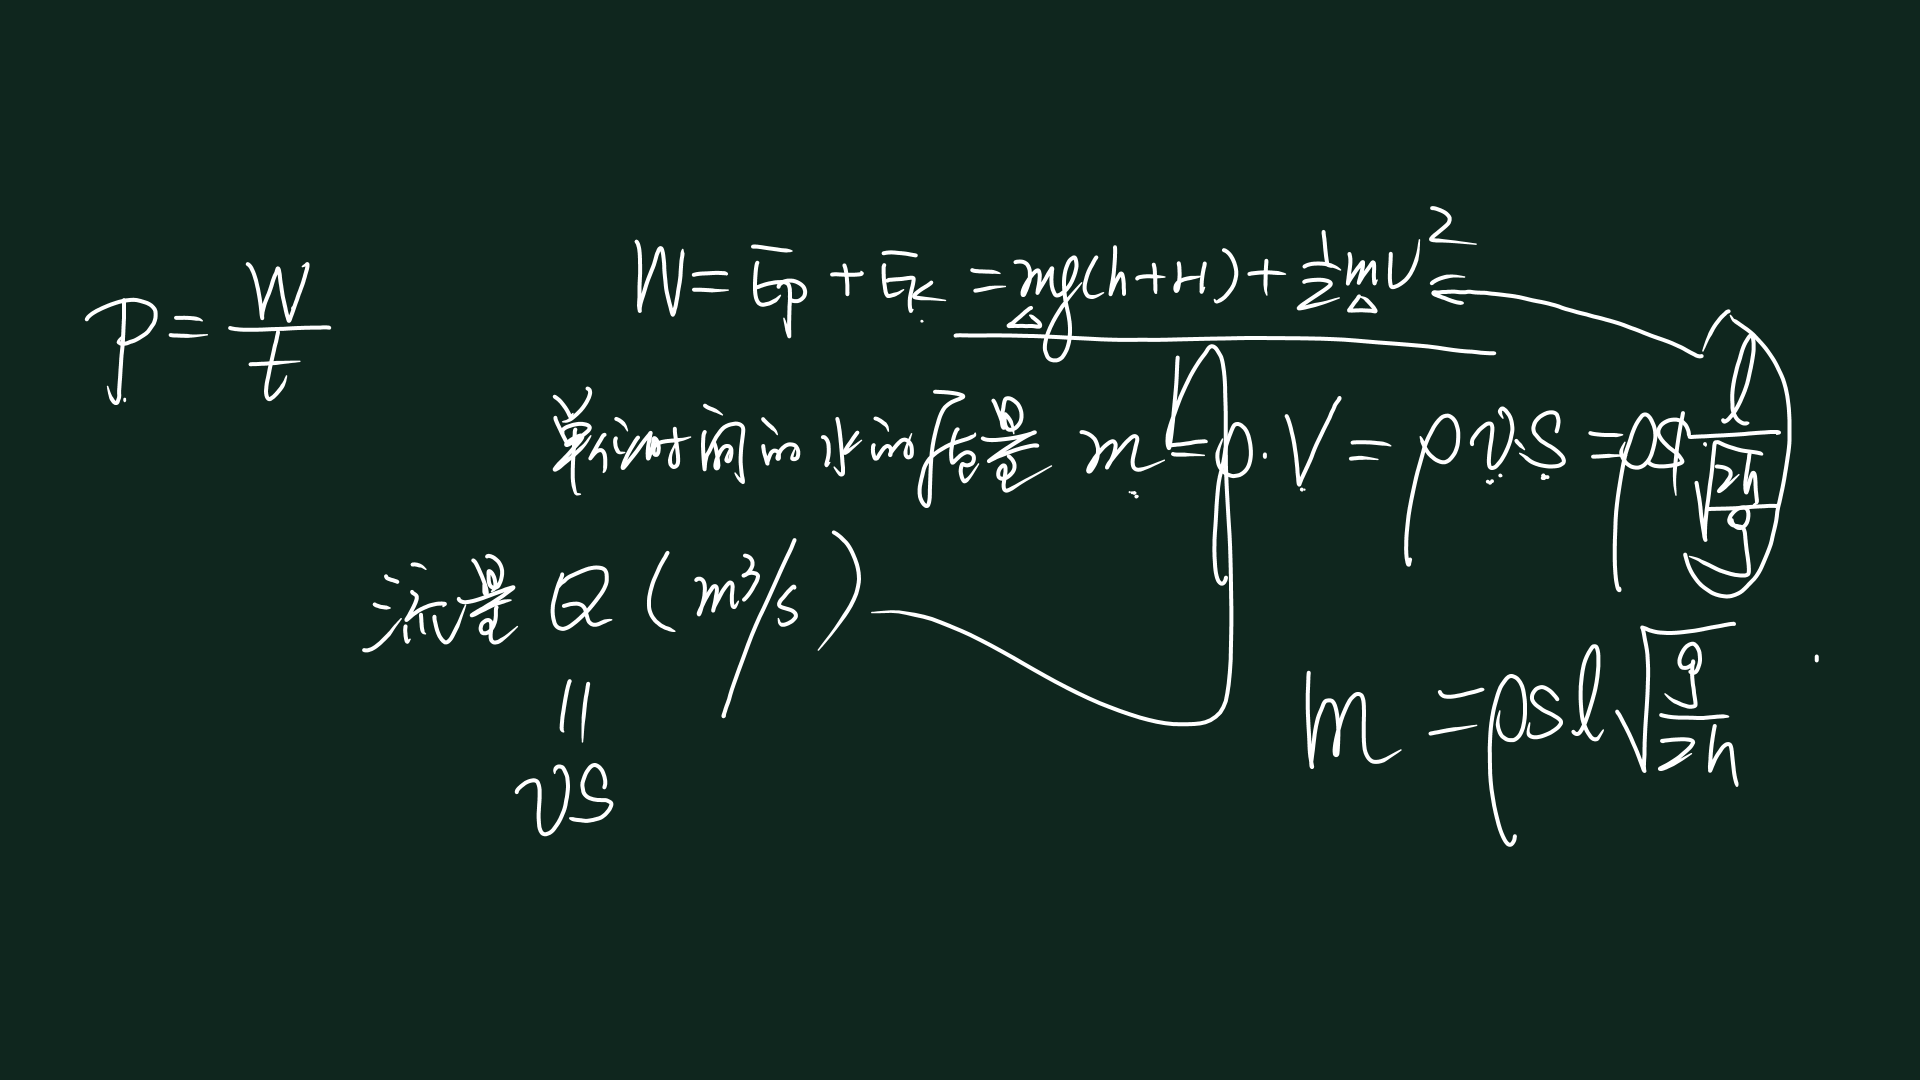 P = W/t
W = Ep + Ek = mg(h+H) + 1/2 mv²
单位时间的水的质量 m = ρ·V = ρvS = ρS l/√(2h/g)
流量 Q (m³/s)
=
vS
m = ρsl√(g/2h)